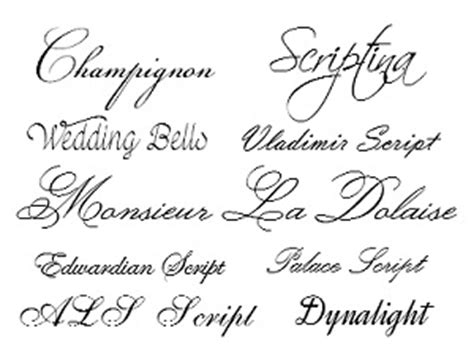 Champignon Scriptina
Wedding Bells Vladimir Script
Monsieur La Dolaise
Edwardian Script Palace Script
ALS Script Dynalight